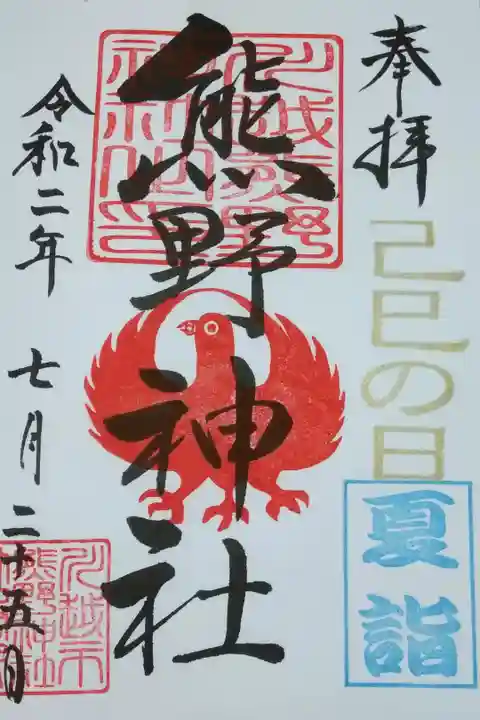 奉拝
己巳の日
夏詣
熊野神社
川越熊野
神社之印
令和二年 七月二十五日
川越市
熊野神社